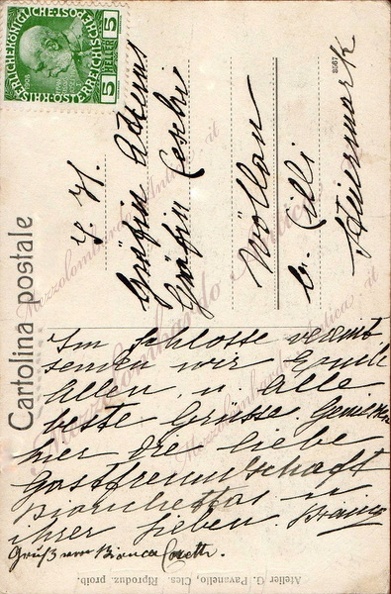 KAISERLICHE KÖNIGLICHE ÖSTERREICHISCHE POST
5 HELLER 5
Cartolina postale
I. H.
Gräfin
Gräfin Ceschi
Wöllan
b. Cilli
Steiermark
Im Schlosse vereint
senden wir Euch
Allen u. alle
beste Grüsse. Genießen
hier die liebe
Gastfreundschaft
Bianchettas u
ihrer Lieben.
Gruß von Bianca
Atelier G. Pavanello, Cles. Riproduz. proib.
Mezzolombardo Antica.it